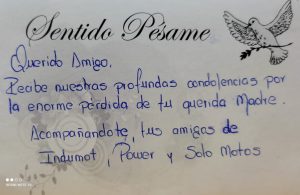 Sentido Pésame
Querido Amigo.
Recibe nuestras profundas condolencias por
la enorme pérdida de tu querida Madre.
Acompañandote, tus amigos de
Indumot, Power y Solo Motos